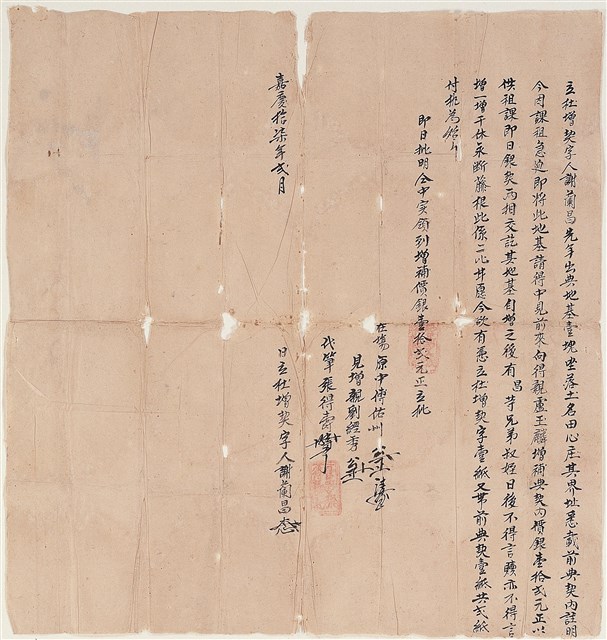 立杜增契字人謝蘭昌先年出典地基壹塊坐落土名田心庄其界址悉載前典契內註明
今因課租急迫即將此地基請得中見前來向得親盧玉麟增補典契內價銀壹拾弍元正以
供租課即日銀契兩相交訖其地基自增之後有昌等兄弟叔姪日後不得言贖亦不得言
增一增千休永斷藤根此係二比甘愿今欲有憑立杜增契字壹紙又帶前典契壹紙共弍紙
付執為炤
即日批明仝中實領到增補價銀壹拾弍元正立批
在場原中傅佑州
見增親劉經秀
代筆張得壽
嘉慶拾柒年弍月
日立杜增契字人謝蘭昌